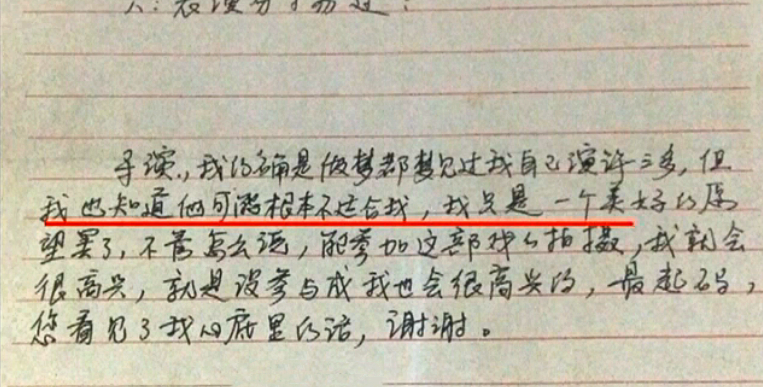 导演，我的确是做梦都梦见过我自己演许三多，但
我也知道他可能根本不适合我，我只是一个美好的愿
望罢了，不管怎么说，能参加这部戏的拍摄，我就会
很高兴，就是没参与成我也会很高兴的，最起码，
您看见了我心底里的话，谢谢。